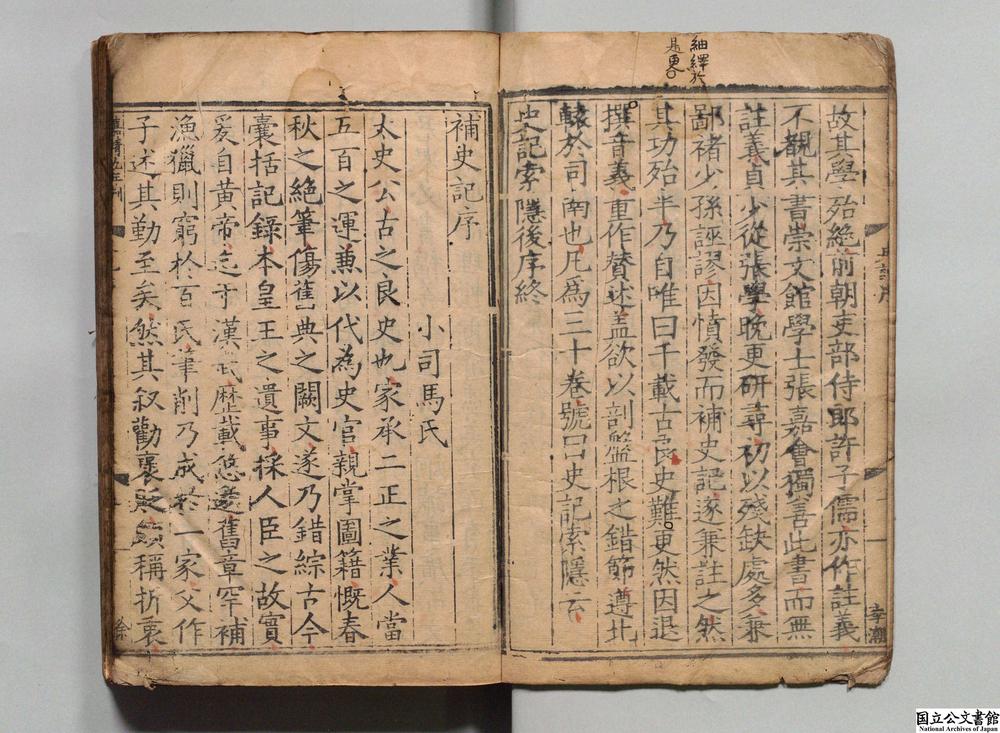 紬繹於
是更
故其學殆絶前朝吏部侍郎許子儒亦作註義
不覩其書崇文館學士張嘉會獨善此書而無
註義貞少從張學晚更研尋初以殘缺處多兼
鄙褚少孫誣謬因憤發而補史記遂兼註之然
其功殆半乃自唯曰千載古良史難更然因退
撰音義重作賛述盖欲以剖盤根之錯節遵北
轅於司南也凡為三十卷號曰史記索隱云
史記索隱後序終
補史記序
小司馬氏
太史公古之良史也家承二正之業人當
五百之運兼以代為史官親掌圖籍慨春
秋之絶筆傷舊典之闕文遂乃錯綜古今
囊括記錄本皇王之遺事採人臣之故實
爰自黄帝迄于漢武歷載悠邈舊章罕補
漁獵則窮於百氏筆削乃成於一家父作
子述其勤至矣然其叙勸褒貶頗稱折衷
國立公文書館
National Archives of Japan